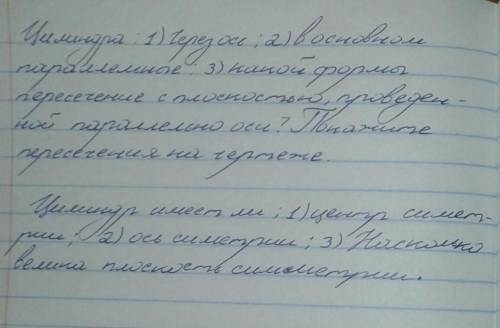 Цилиндра: 1) Через ось; 2) в основном
параллемные: 3) какой формы
пересечение с плоскостью, проведен-
ной параллельно оси? Покажите
пересечения на чертеже.
Цилиндр имеет ли; 1) центр симет-
рии; 2) ось симетрии; 3) Насколько
велика плоскость симметрии.